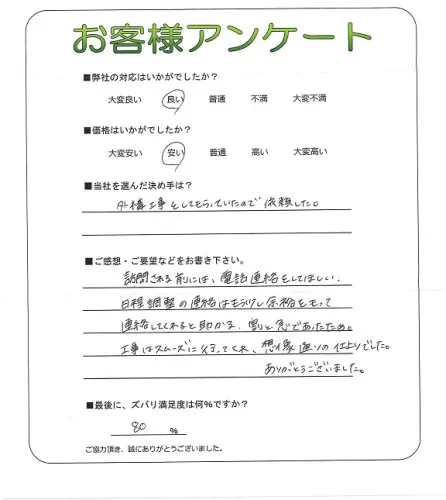 お客様アンケート
■弊社の対応はいかがでしたか?
大変良い 良い 普通 不満 大変不満
■価格はいかがでしたか?
大変安い 安い 普通 高い 大変高い
■当社を選んだ決め手は?
外構工事をしてもらっていたので依頼した。
■ご感想・ご要望などをお書き下さい。
訪問される前には、電話連絡をしてほしい。
日程調整の連絡はもう少し余裕をもって
連絡してくれると助かる。割と急であったため。
工事はスムーズに行ってくれ、想像通りの仕上りでした。
ありがとうございました。
■最後に、ズバリ満足度は何%ですか?
80 %
ご協力頂き、誠にありがとうございました。